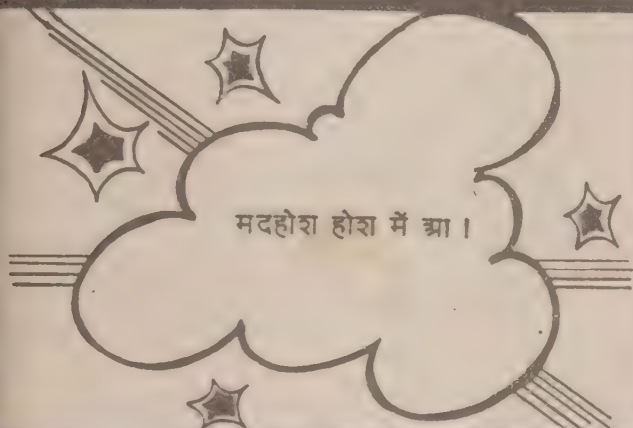 मदहोश होश में आ।